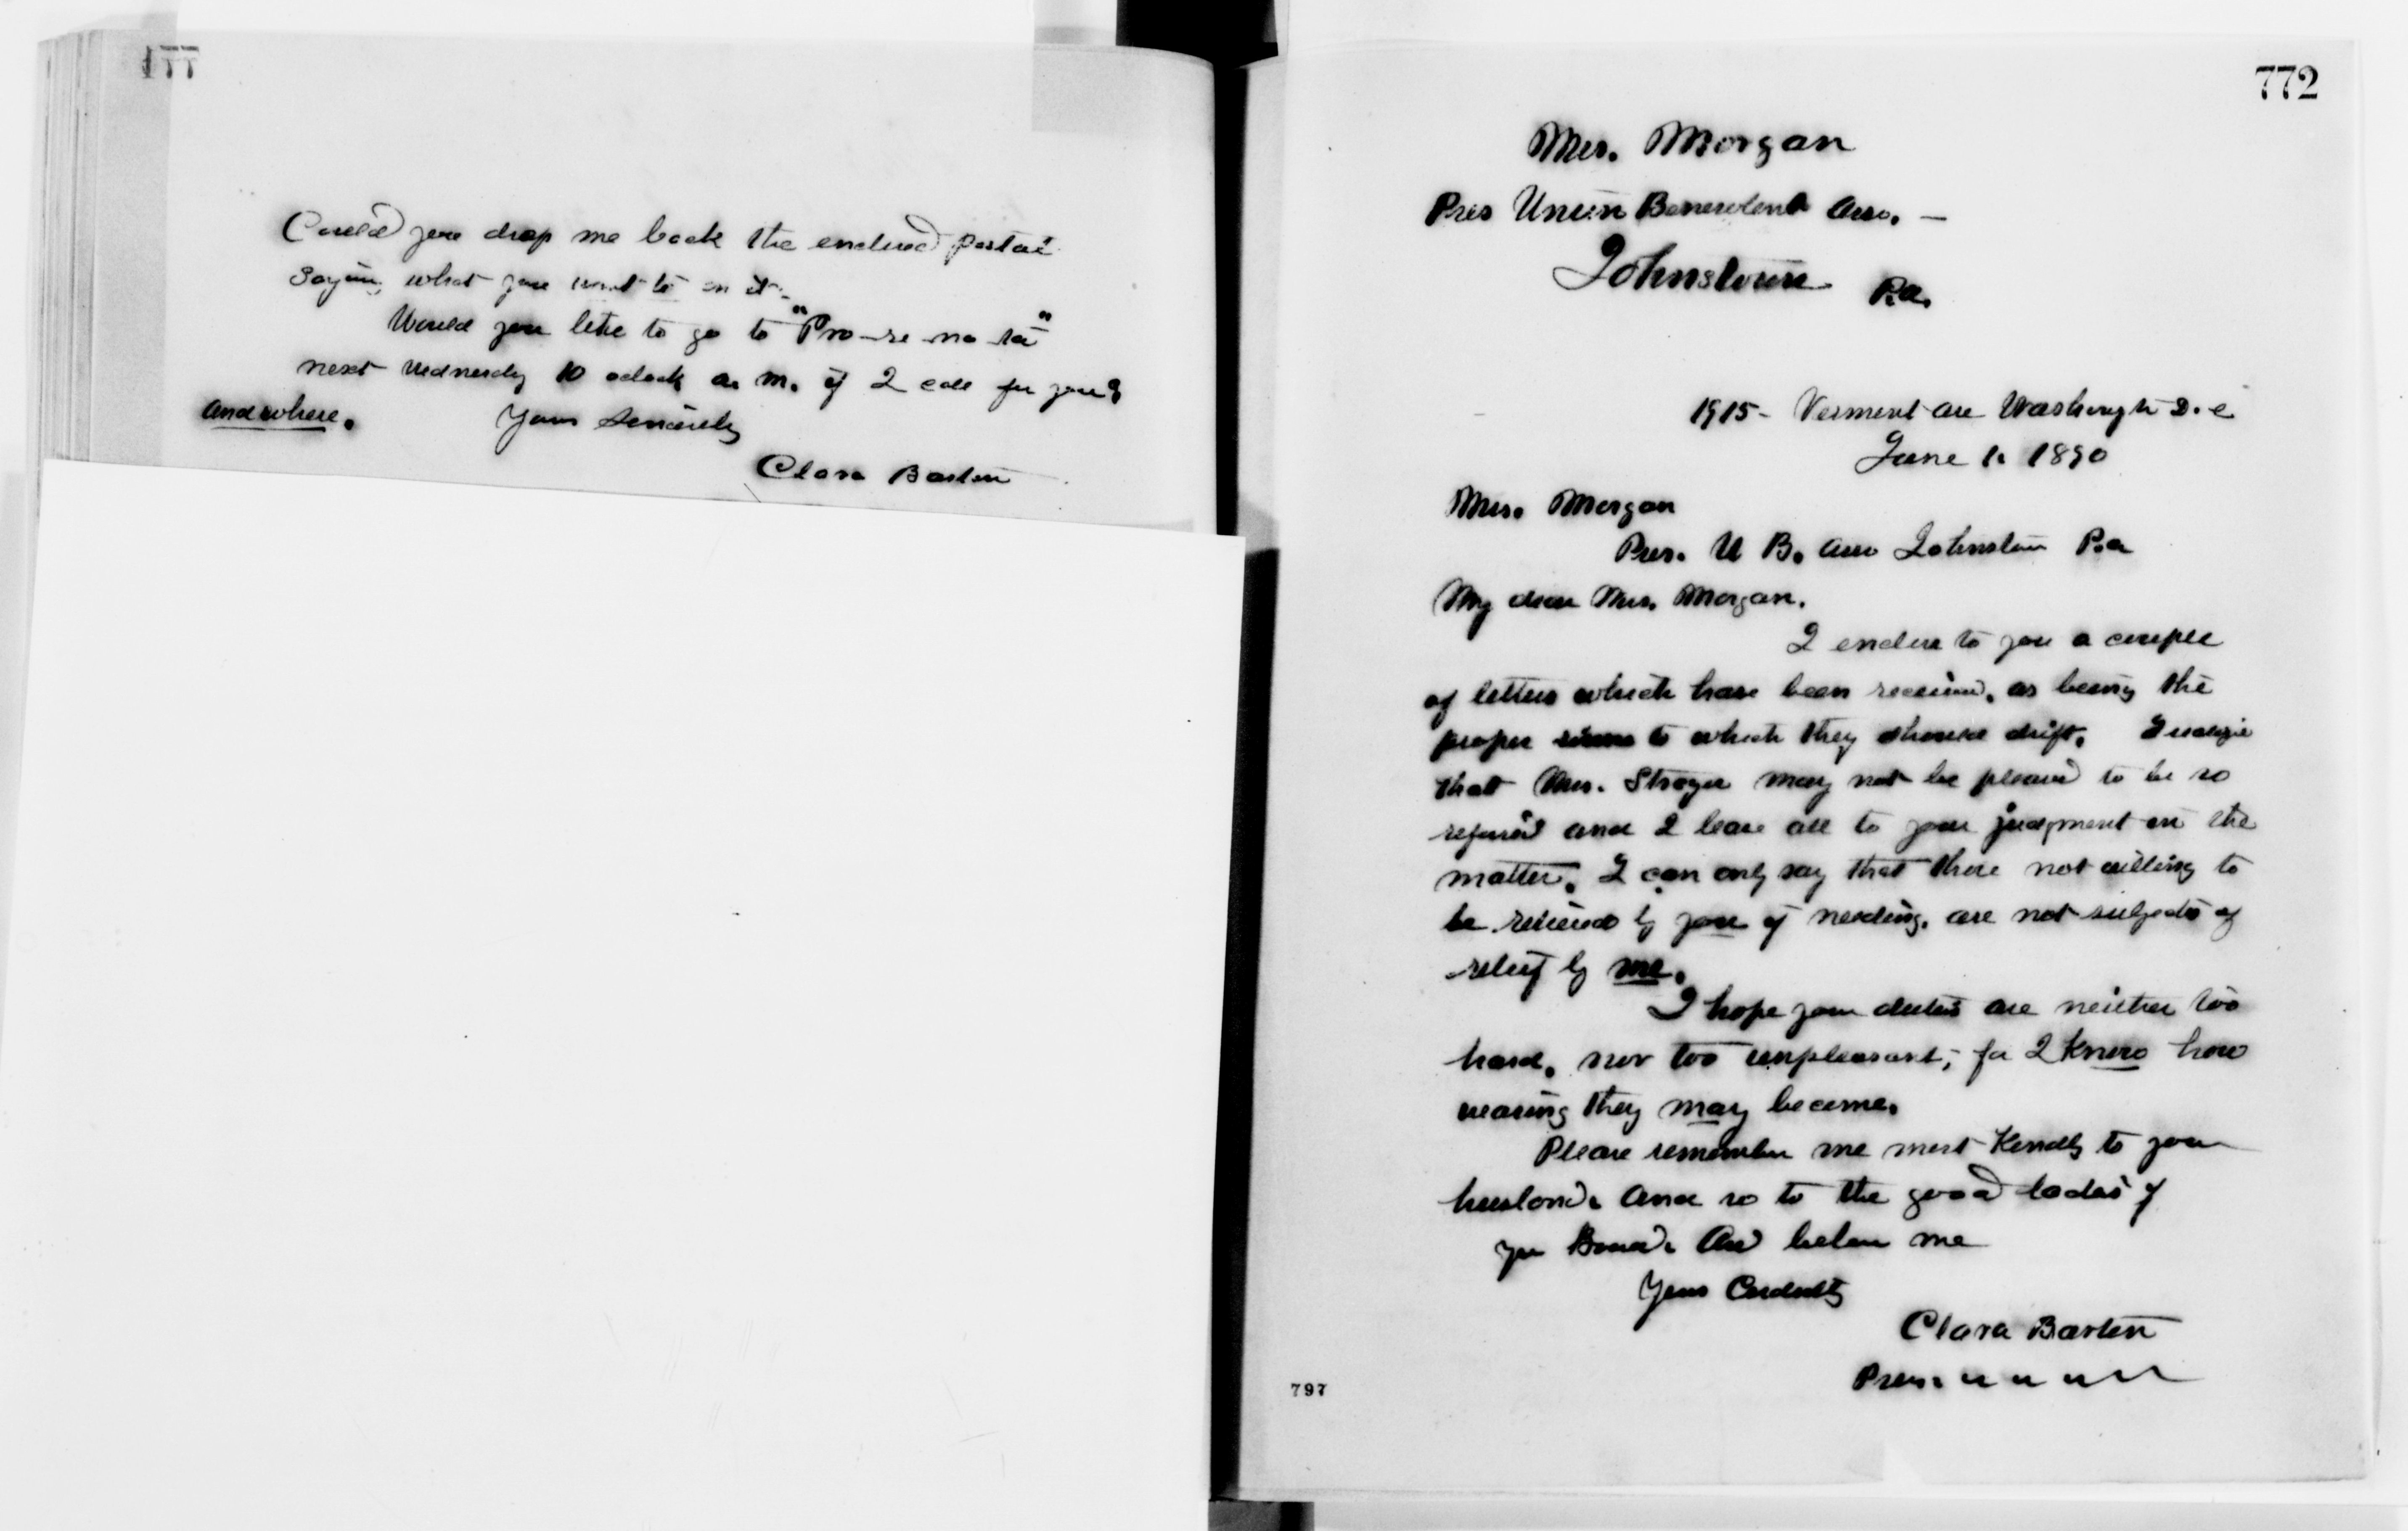 Could you drop me back the enclosed postal
saying what you want to on it.
Would you like to go to "Pro-re-na-ta"
next Wednesday 10 oclock a. m. if I call for you?
and where.
Yours Sincerely
Clara Barton
772
Mrs. Morgan
Pres Union Benevolent Asso. —
Johnstown Pa.
1915 - Vermont Ave Washington D. C
June 1. 1890
Mrs. Morgan
Pres. U B. Asso Johnstown Pa
My dear Mrs. Morgan.
I enclose to you a couple
of letters which have been received, as being the
proper to which they should drift. I realize
that Mrs. Strayer may not be pleased to be so
referred and I leave all to your judgment in the
matter. I can only say that those not willing to
be relieved by you if needing, are not subjects of
relief by me.
I hope your duties are neither too
hard, nor too unpleasant; for I know how
wearing they may become.
Please remember me most Kindly to your
husband. And so to the good ladies of
your Board. And believe me
Yours Cordially
Clara Barton
Pres. " " " "
797